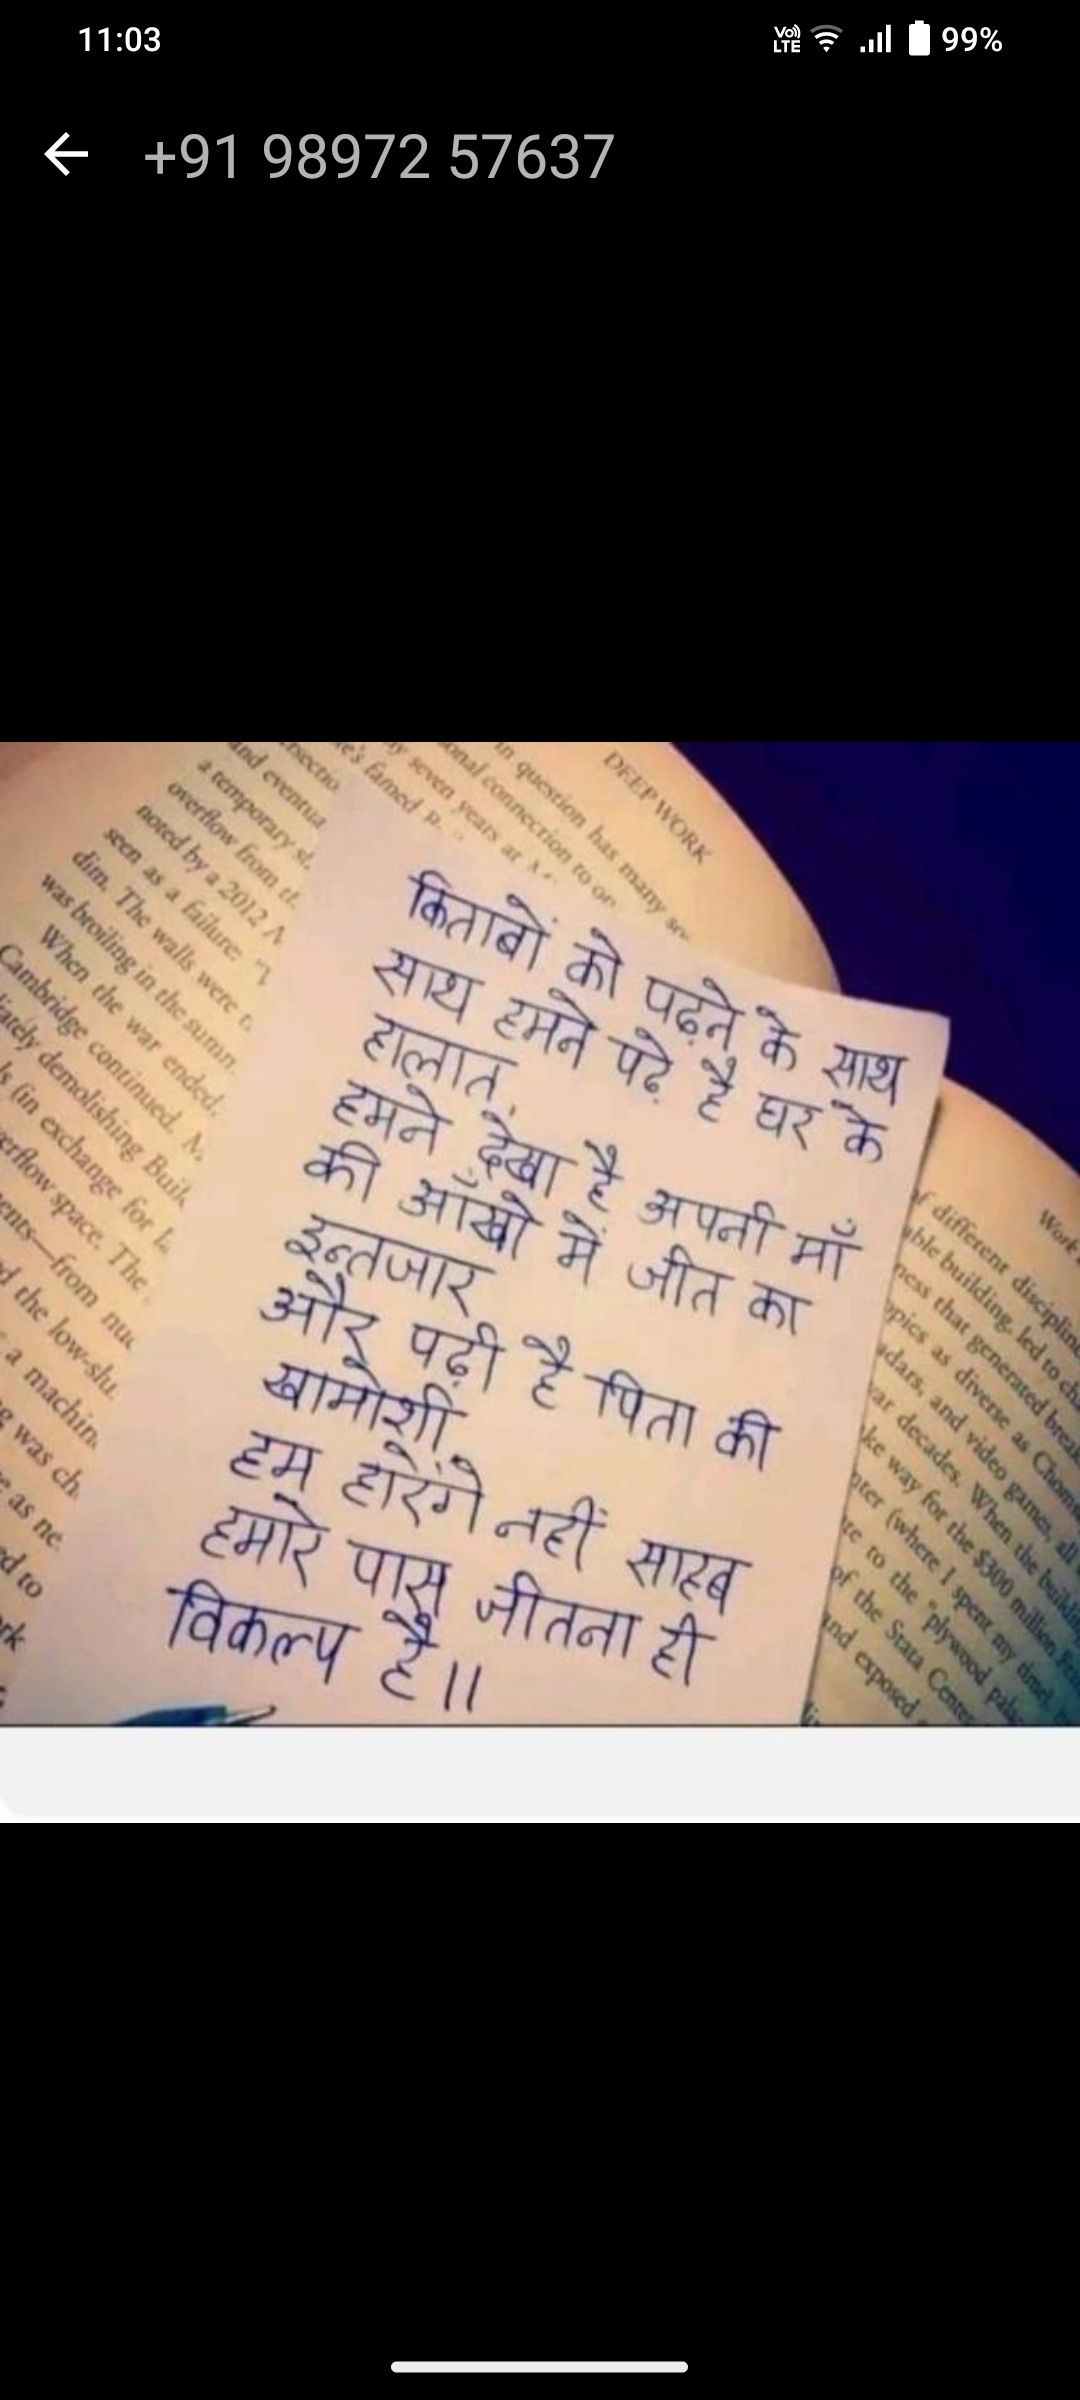 11:03
Vo)) LTE 99%
+91 98972 57637
DEEP WORK
in question has many
onal connection to
seven years at
famed
and eventua
a temporary
overflow from
noted by a 2012
seen as a failure:
dim. The walls were
was broiling in the
When the war ended,
Cambridge continued.
demolishing
(in exchange for
space. The
from
the
a machin
was
as
to
किताबों को पढ़ने के साथ
साथ हमने पढे़ है घर के
हालात,
हमने देखा है अपनी माँ
की आँखो में जीत का
इन्तजार
और पढ़ी है पिता की
खामोशी
हम हारेंगे नहीं साहब
हमारे पास जीतना ही
विकल्प है॥
Work
of different
building, led to
that generated
as diverse as
and video games, all
decades. When the
way for the $300 million
(where I spent my time)
to the "plywood
of the Stata Center,
and exposed